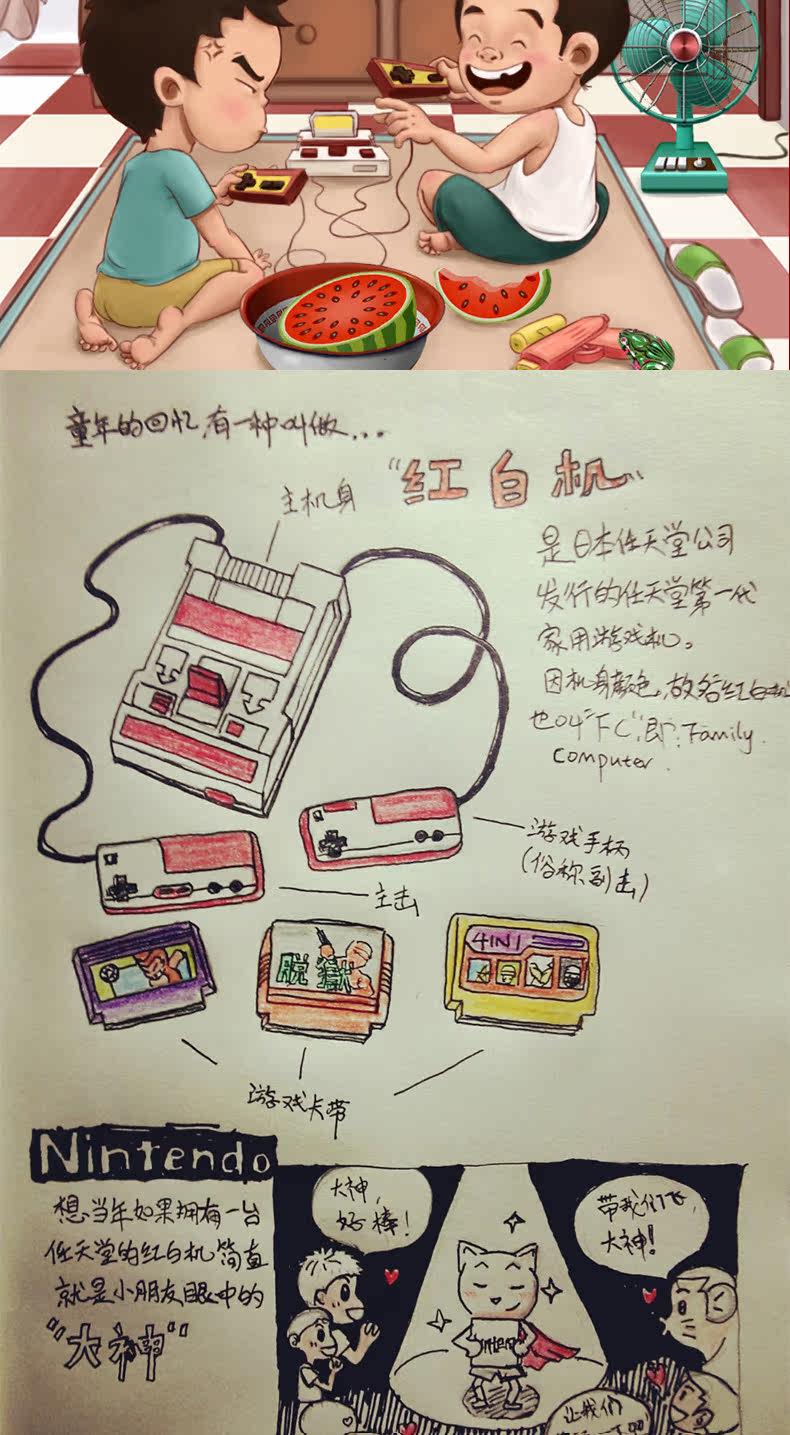 童年的回忆,有一种叫做...
主机身
"红白机"
是日本任天堂公司
发行的任天堂第一代
家用游戏机。
因机身颜色,故名红白机
也叫"FC",即:Family
Computer.
游戏手柄
(俗称副击)
主击
4IN1
脱獄
游戏卡带
Nintendo
想当年如果拥有一台
任天堂的红白机简直
就是小朋友眼中的
"大神"
大神,
好棒!
带我们飞,
大神!
让我们